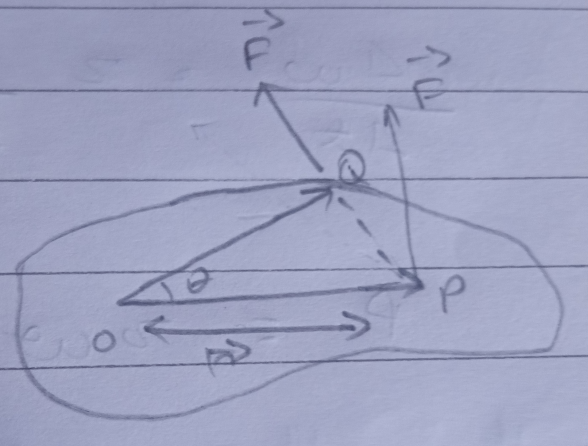 F
F
Q
θ
P
O
r